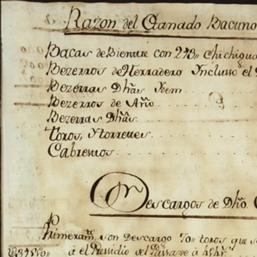 Razon del Ganado Bacuno
Bacas de Bientre con 240. Chichigua
Bezerros de Herradero Incluso el
Bezerras Dhas. Ytem
Bezerros de Año
Bezerras Dhas.
Toros, y Torreznes
Cabestros
Descargos de Dho.
Primeramte. son Descargo Toros que se
á el Presidio del